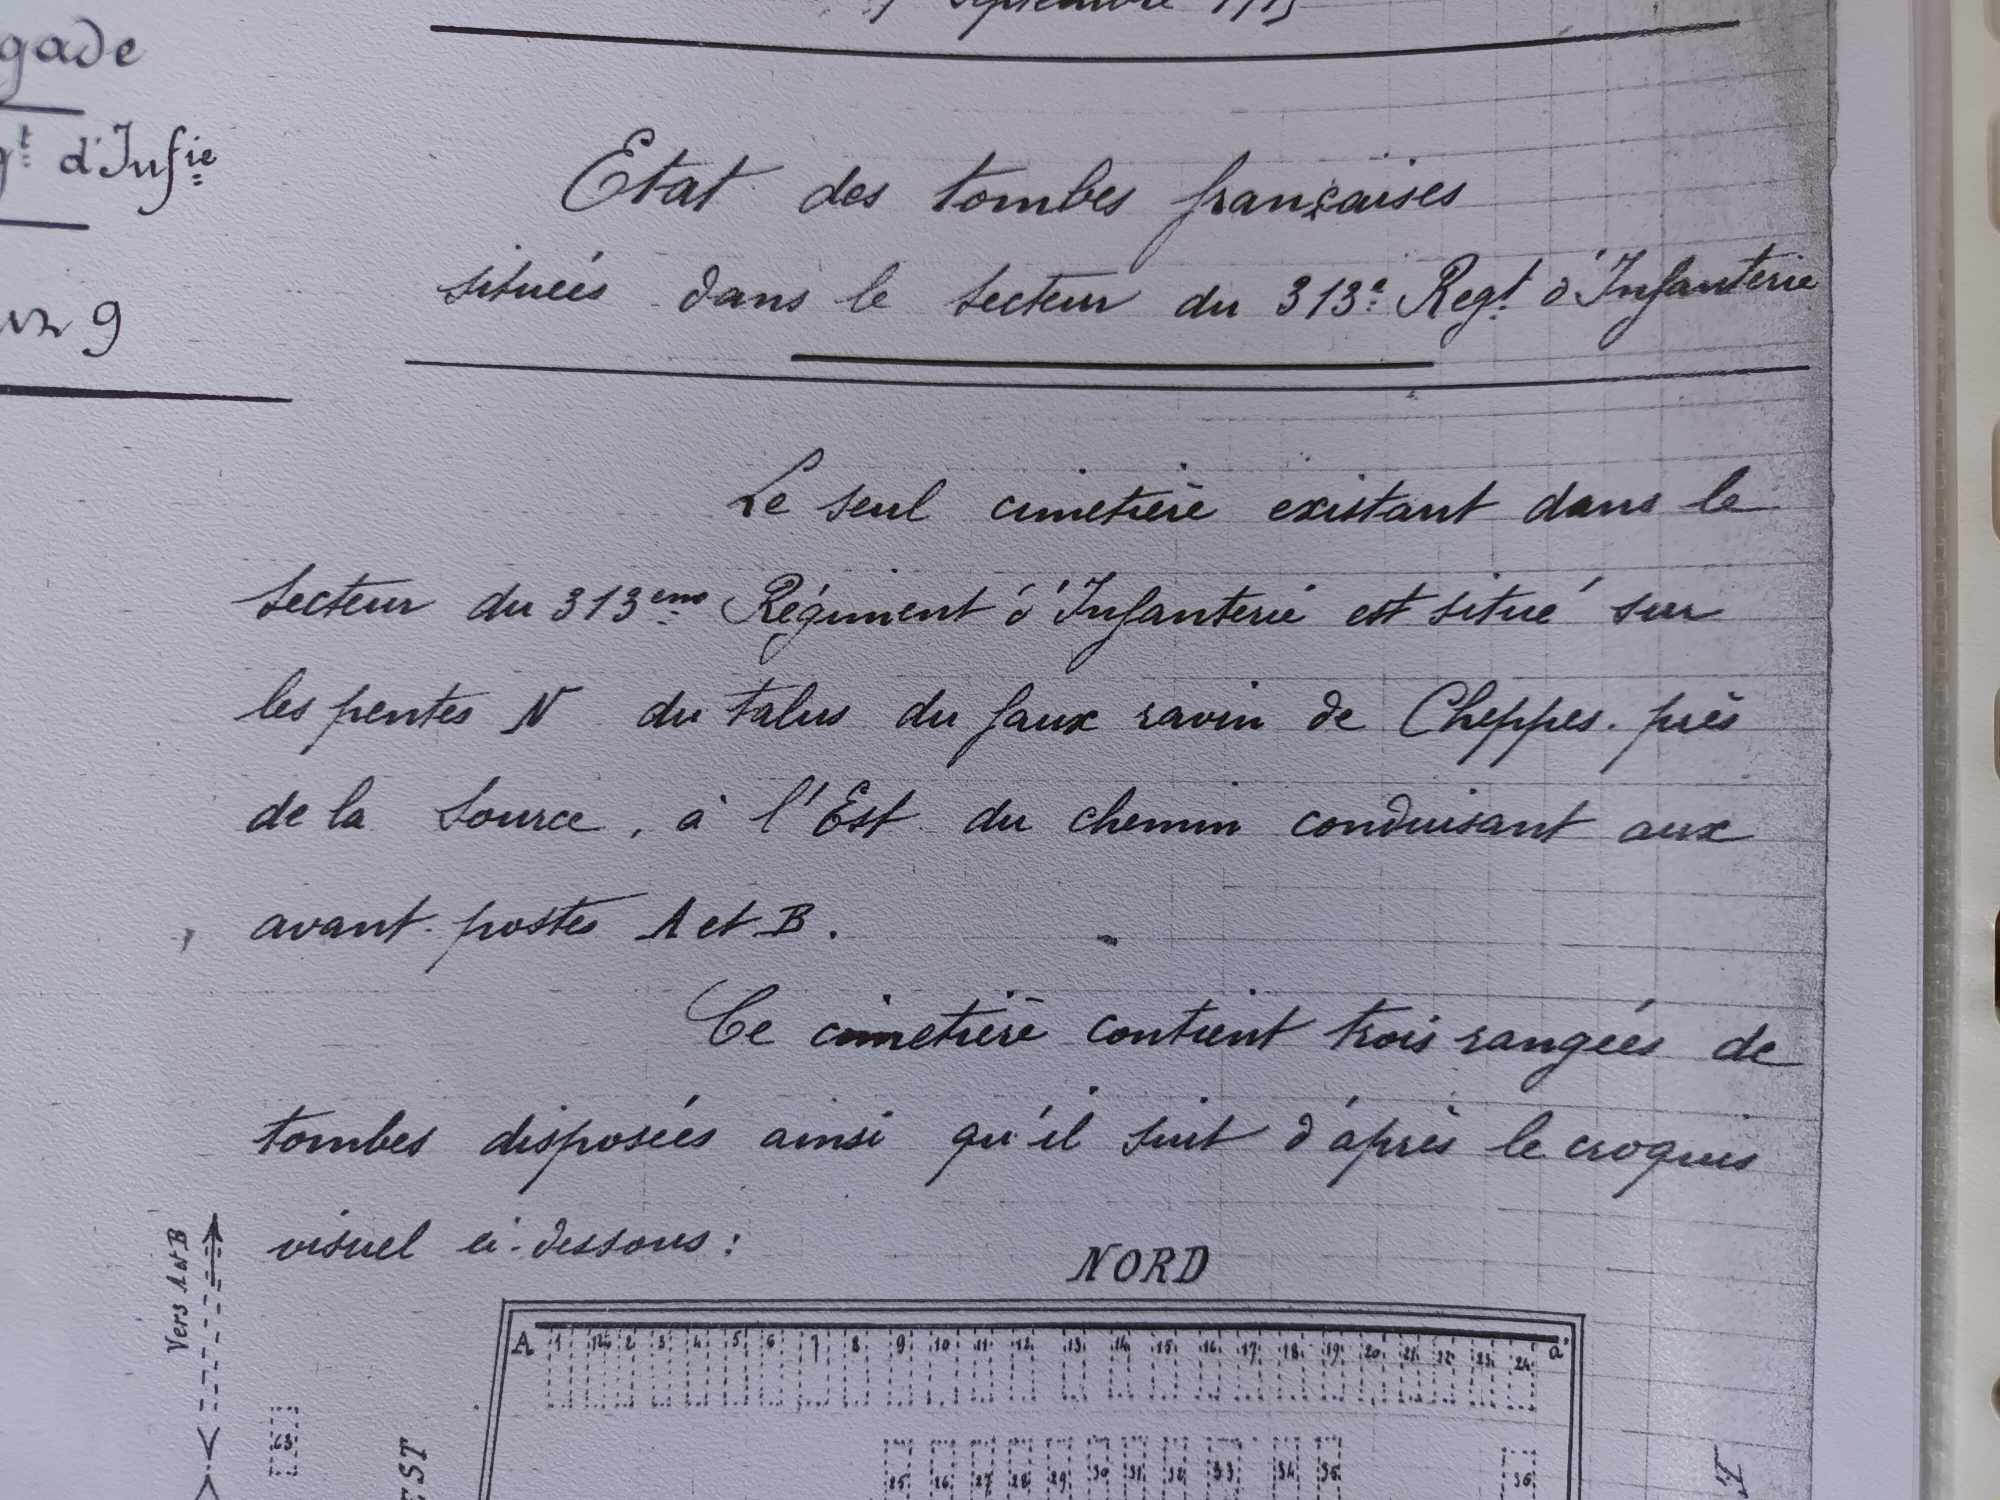 Septembre 1915
gade
gt d'Infie
9
Etat des tombes françaises
situées dans le secteur du 313e Regt d'Infanterie
Le seul cimetière existant dans le
secteur du 313eme Régiment d'Infanterie est situé sur
les pentes N du talus du faux ravin de Cheppes près
de la Source, à l'Est du chemin conduisant aux
avant-postes A et B.
Ce cimetière contient trois rangées de
tombes disposées ainsi qu'il suit d'après le croquis
visuel ci-dessous :
NORD
Vers A et B
A 1 2 3 4 5 6 7 8 9 10 11 12 13 14 15 16 17 18 19 20 21 22 23 24 a'
63
25 26 27 28 29 30 31 32 33 34 35 36
EST